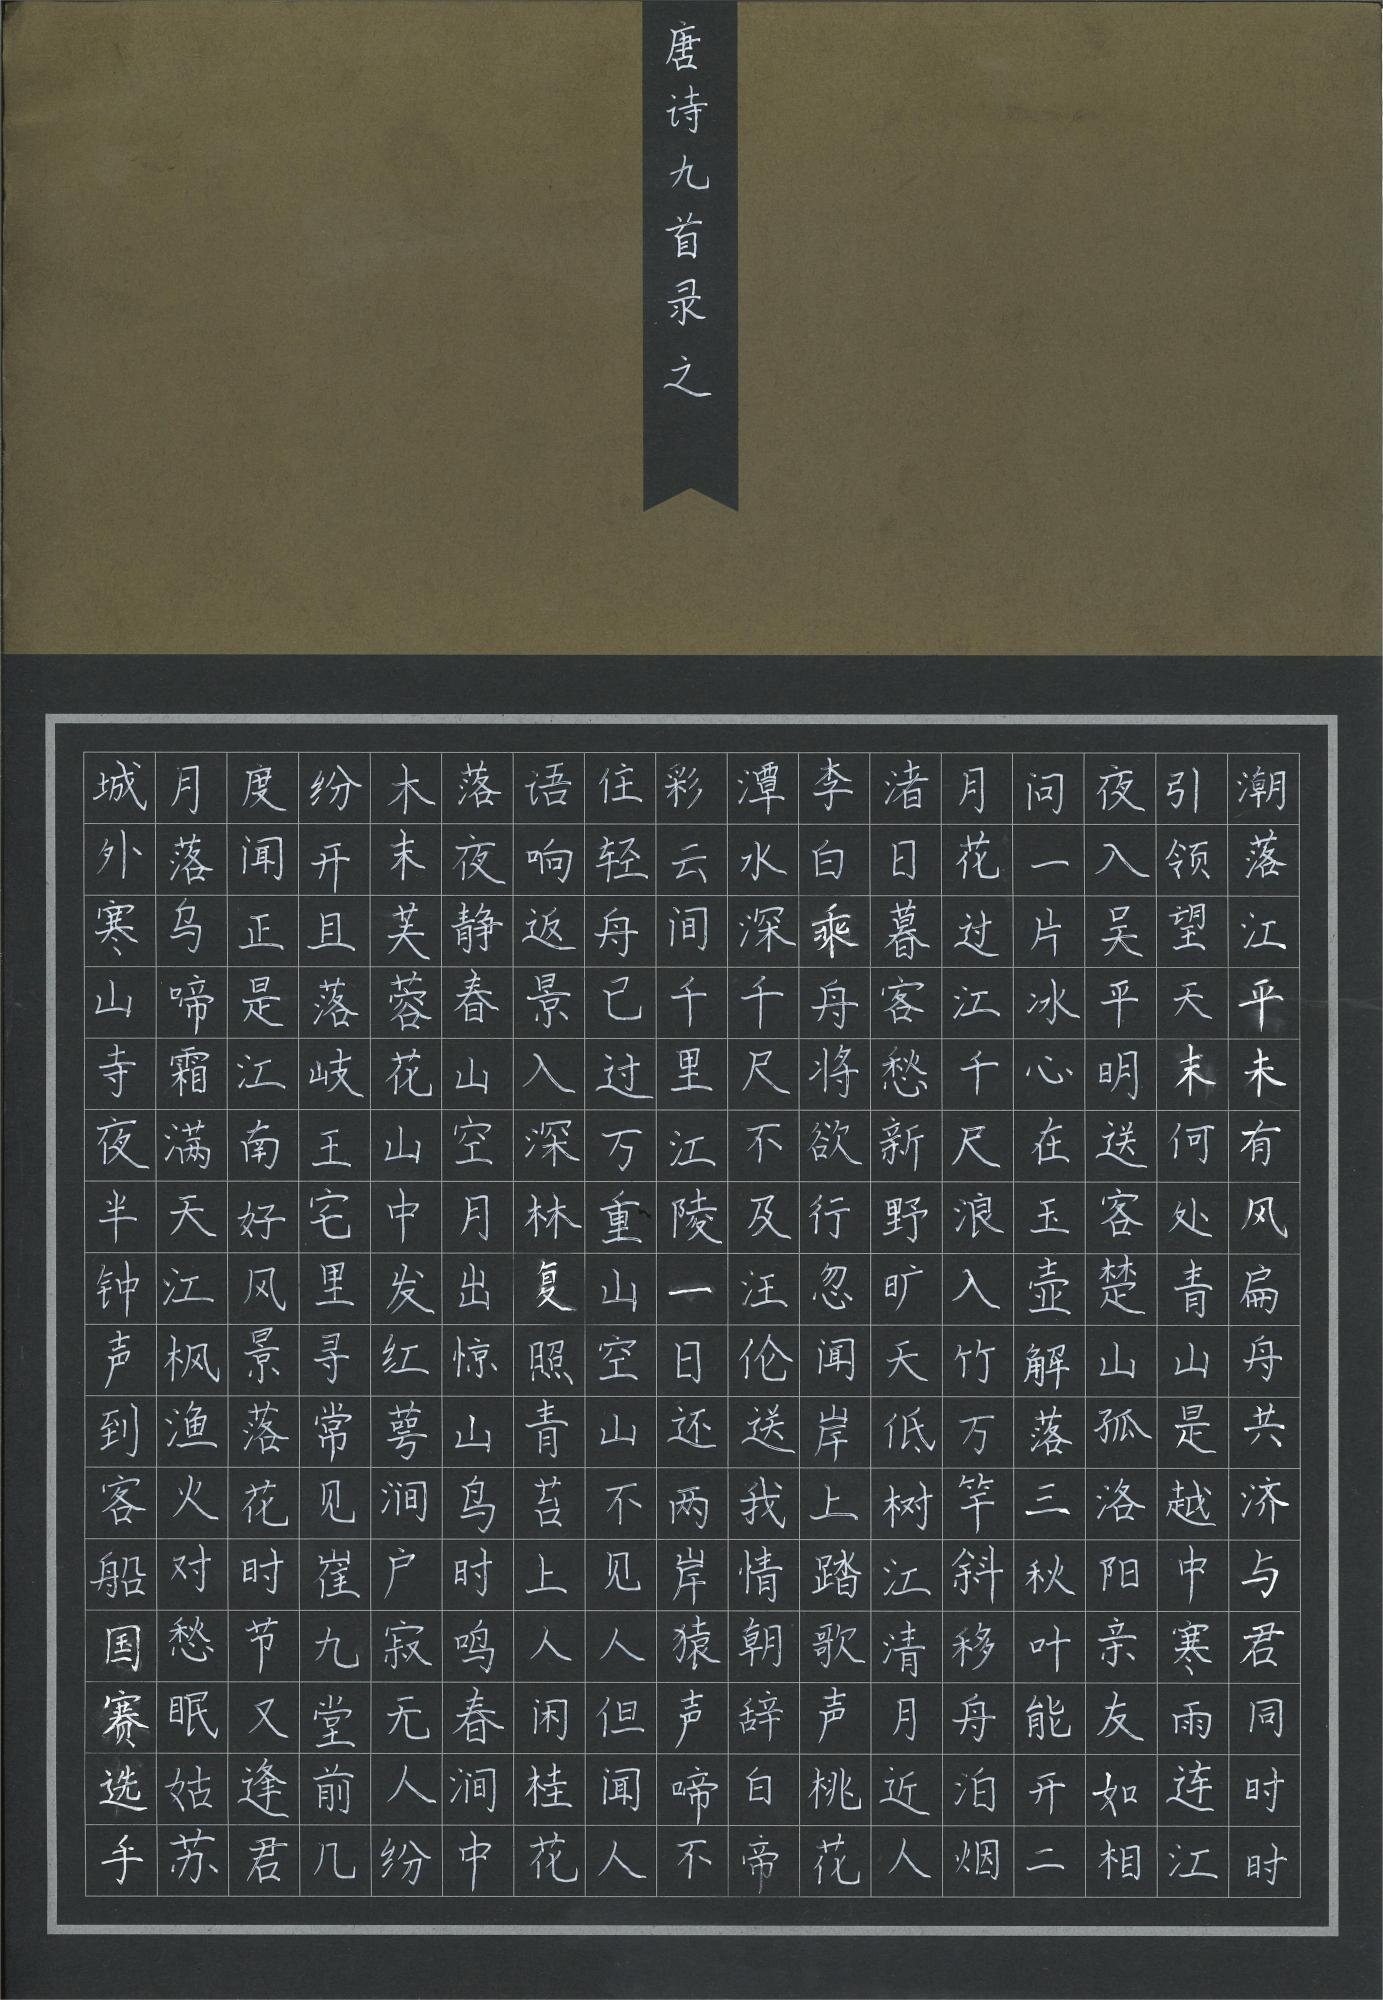 唐诗九首录之
潮落江平未有风扁舟共济与君同时时
引领望天末何处青山是越中寒雨连江
夜入吴平明送客楚山孤洛阳亲友如相
问一片冰心在玉壶解落三秋叶能开二
月花过江千尺浪入竹万竿斜移舟泊烟
渚日暮客愁新野旷天低树江清月近人
李白乘舟将欲行忽闻岸上踏歌声桃花
潭水深千尺不及汪伦送我情朝辞白帝
彩云间千里江陵一日还两岸猿声啼不
住轻舟已过万重山空山不见人但闻人
语响返景入深林复照青苔上人闲桂花
落夜静春山空月出惊山鸟时鸣春涧中
木末芙蓉花山中发红萼涧户寂无人纷
纷开且落岐王宅里寻常见崔九堂前几
度闻正是江南好风景落花时节又逢君
月落乌啼霜满天江枫渔火对愁眠姑苏
城外寒山寺夜半钟声到客船国赛选手